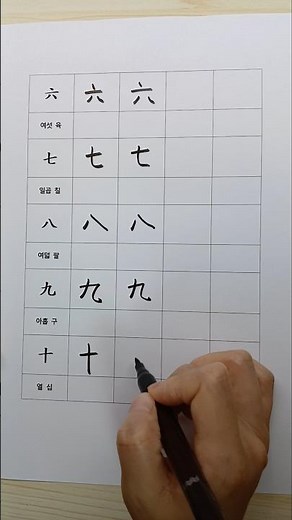 六 六 六
여섯 육
七 七 七
일곱 칠
八 八 八
여덟 팔
九 九 九
아홉 구
十 十
열 십